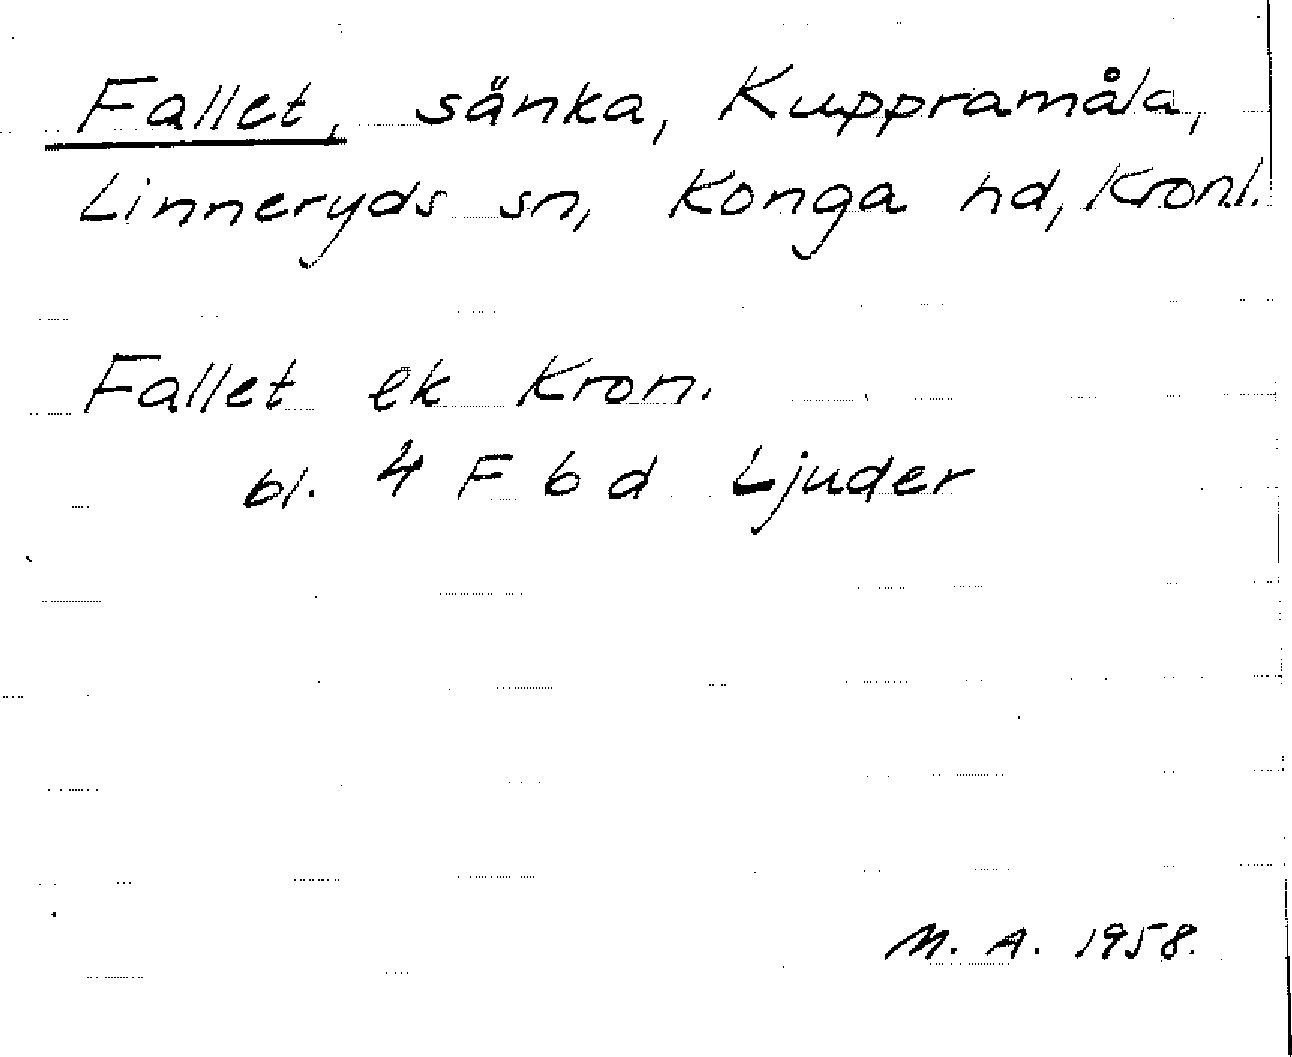 Fallet, sänka, Kuppramåla,
Linneryds sn, Konga hd, Kronl.
Fallet ek Kron.
bl. 4 F b d Ljuder
M. A. 1958.